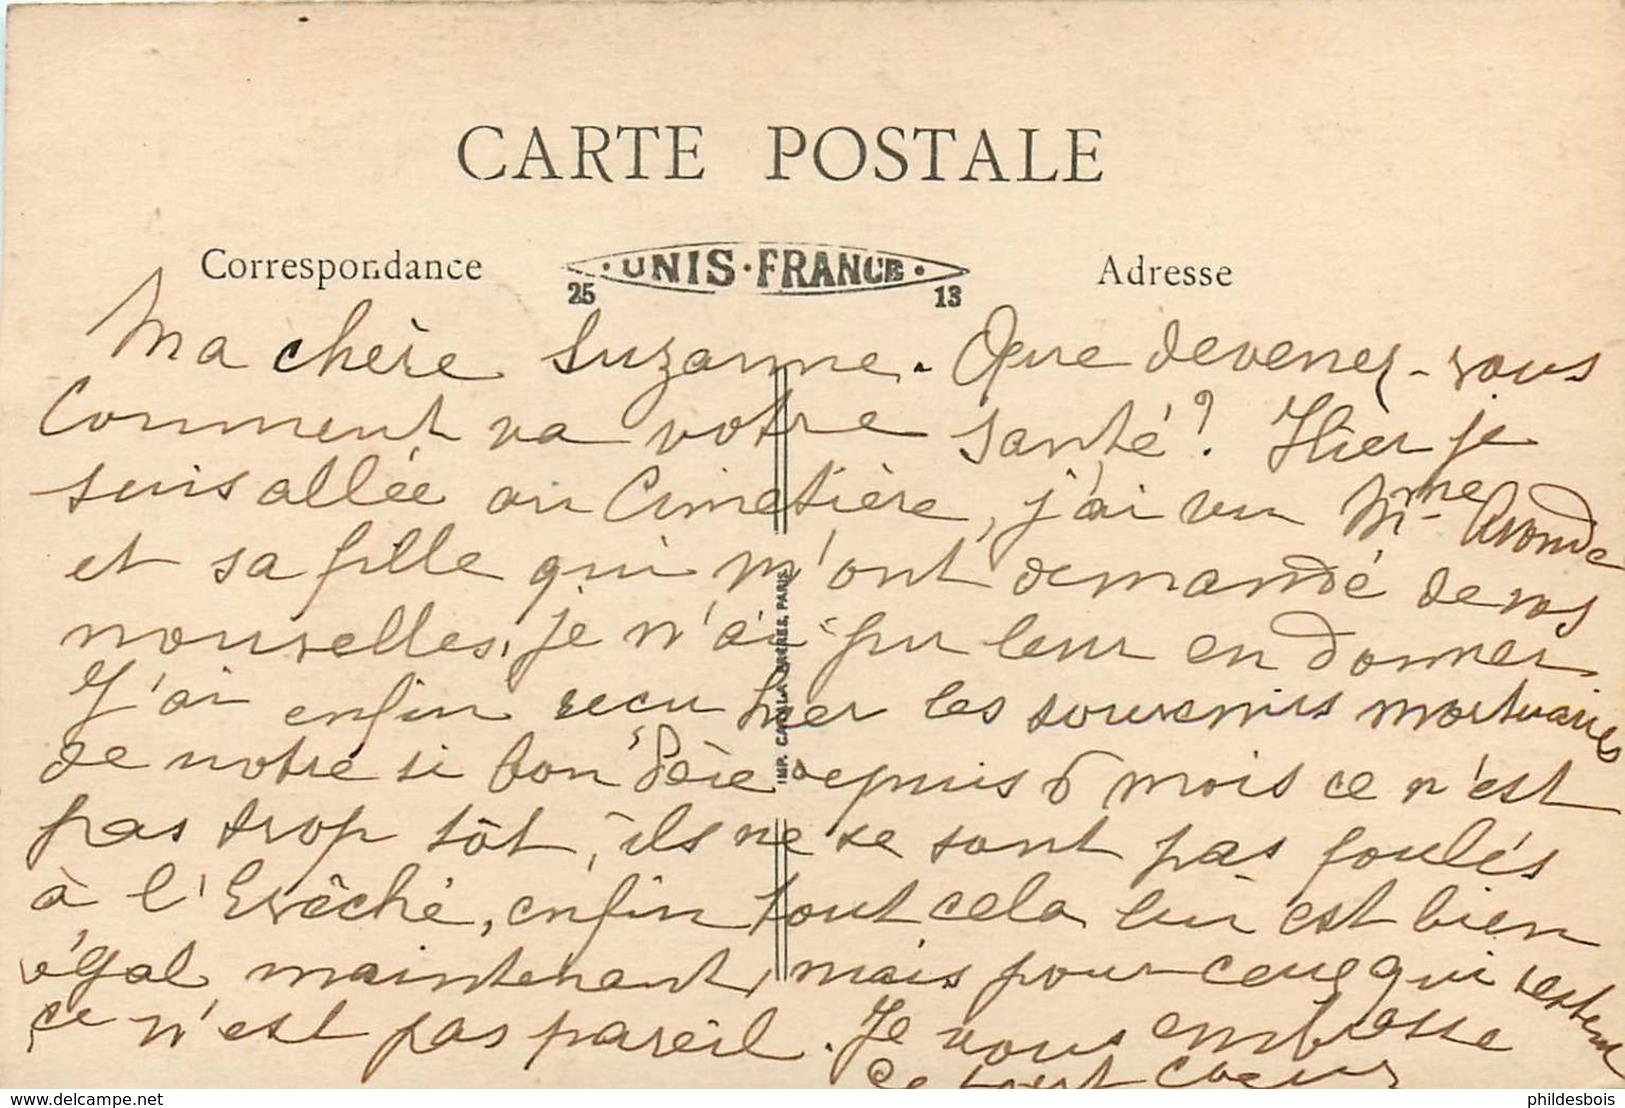 CARTE POSTALE
Correspondance
· UNIS · FRANCE ·
25
13
Adresse
Ma chère Suzanne. Que devenez-vous
Comment va votre santé? Hier je
suis allée au Cimetière, j'ai vu Mme
et sa fille qui m'ont demandé de vos
nouvelles, je n'ai pu leur en donner
J'ai enfin reçu hier les souvenirs mortuaires
de notre si bon Père depuis 6 mois ce n'est
pas trop tôt, ils ne se sont pas foulés
à l'Evêché, enfin tout cela lui est bien
égal maintenant, mais pour ceux qui restent
ce n'est pas pareil. Je vous embrasse
de tout coeur
IMP. CATALA FRERES, PARIS
delcampe.net
phildesbois